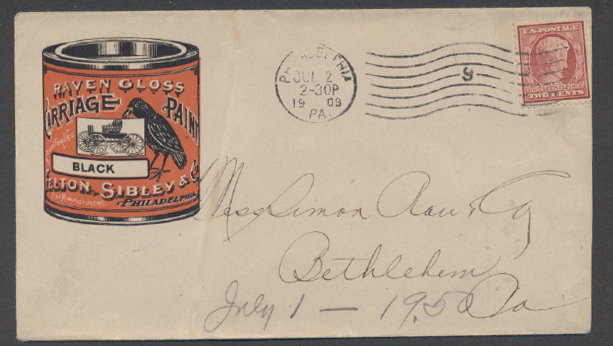 RAVEN GLOSS
CARRIAGE PAINT
BLACK
FELTON, SIBLEY & Co.
PHILADELPHIA
JUL 2
2-30P
1909
PA.
9
U.S. POSTAGE
TWO CENTS
Simon Rau & Co
Bethlehem
Pa
July 1 — 1950